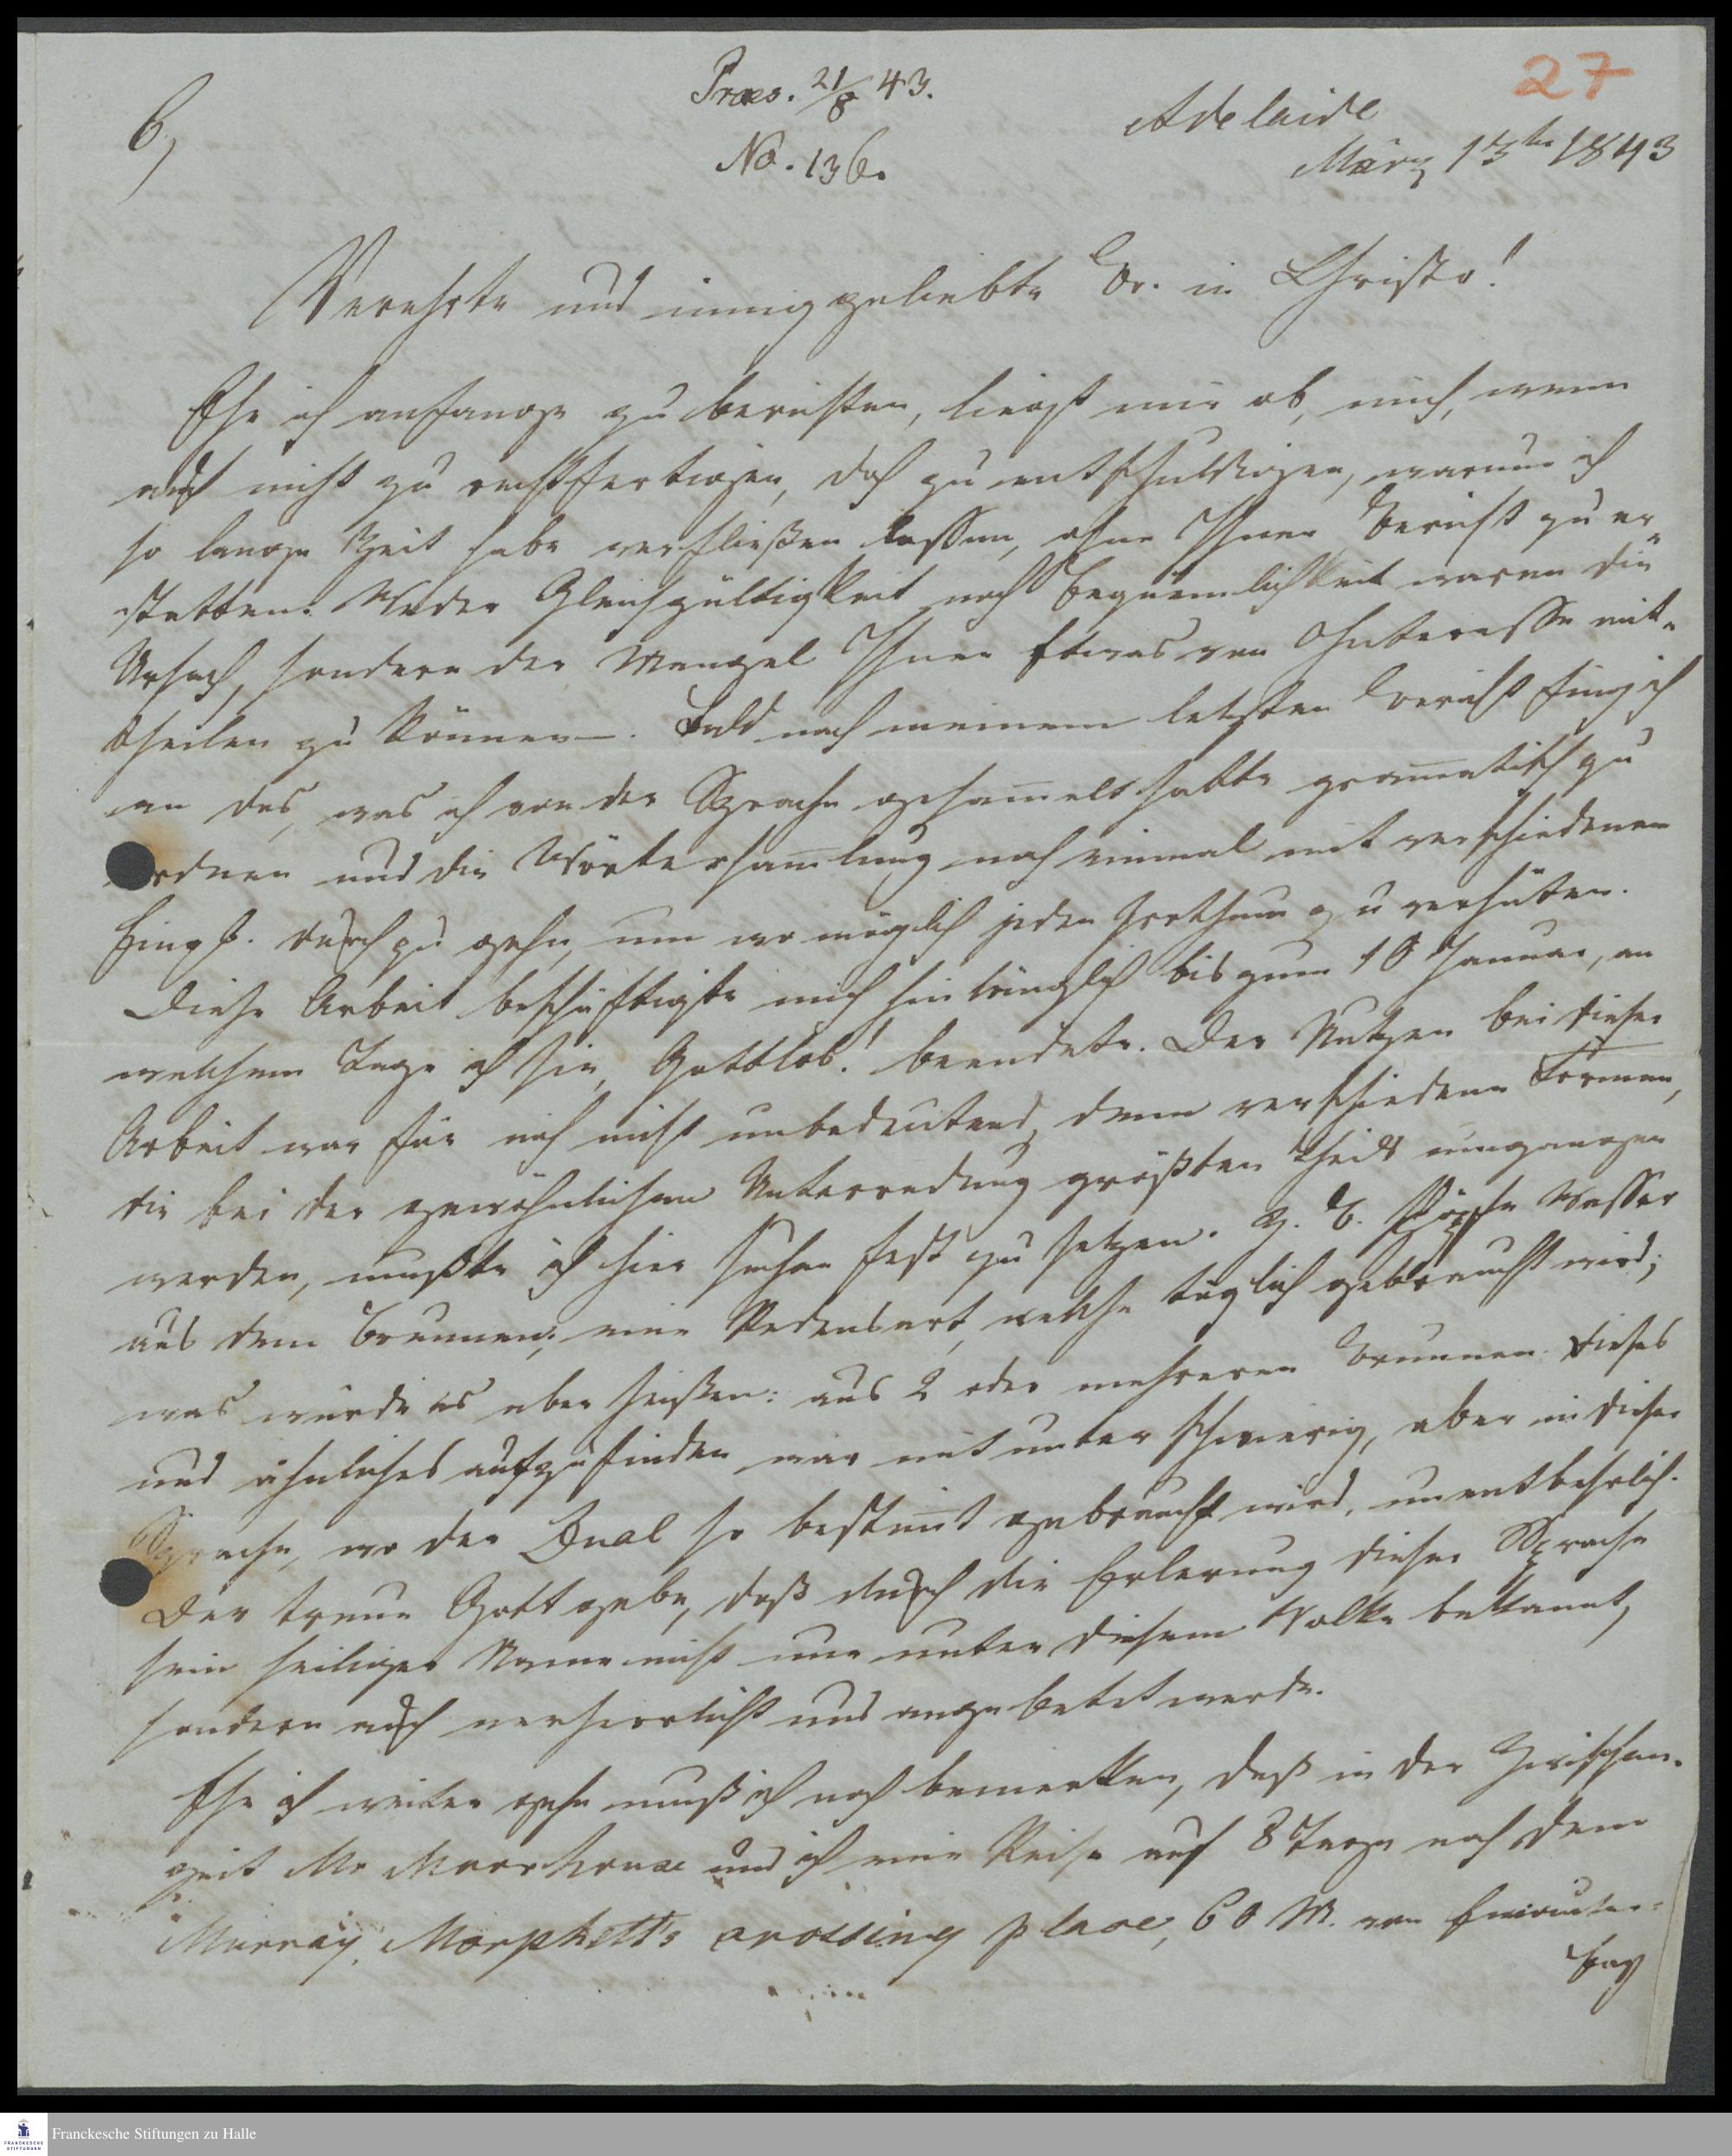 27
6,
Praes. 21/8 43.
No. 136.
Adelaide
März 13te 1843
Verehrte und innig geliebte Br. in Christo!
Ehe ich anfange zu berichten, liegt mir ob, mich, wenn
auch nicht zu rechtfertigen, doch zu entschuldigen, warum ich
so lange Zeit habe verfließen lassen, ohne Ihnen Bericht zu er-
statten. Weder Gleichgültigkeit noch Bequemlichkeit waren die
Ursach, sondern der Mangel Ihnen Etwas von Interesse mit-
theilen zu können. Bald nach meinem letzten Bericht fing ich
an das, was ich von der Sprache gesam̄elt hatte gram̄atisch zu
ordnen und die Wörtersam̄lung noch einmal mit verschiedenen
Eingb. durch zu gehn, um wo möglich jeden Irrthum zu verhüten.
Diese Arbeit beschäftigte mich hinlänglich bis zum 10 Januar, an
welchem Tage ich sie, Gottlob! beendete. Der Nutzen bei dieser
Arbeit war für mich nicht unbedeutend, denn verschiedene Formen,
die bei der gewöhnlichen Unterredung größten Theils umgangen
werden, mußte ich hier suchen fest zu setzen. Z. B. schöpfe Wasser
aus dem Brunnen; eine Redensart, welche täglich gebraucht wird;
was würde es aber heißen: aus 2 oder mehreren Brunnen. Dieses
und ähnliches aufzufinden war mitunter schwierig, aber in dieser
Sprache, wo der Dual so bestim̄t gebraucht wird, unentbehrlich.
Der treue Gott gebe, daß durch die Erlernung dieser Sprache
sein heiliger Name nicht nur unter diesem Volke bekannt,
sondern auch verherrlicht und angebetet werde.
Ehe ich weiter gehe muß ich noch bemerken, daß in der Zwischen-
zeit Mr Moorhouse und ich eine Reise auf 8 Tage nach dem
Murray, Morphett's crossing place, 60 M. von Encounter-
bay
Franckesche Stiftungen zu Halle
FRANCKESCHE STIFTUNGEN